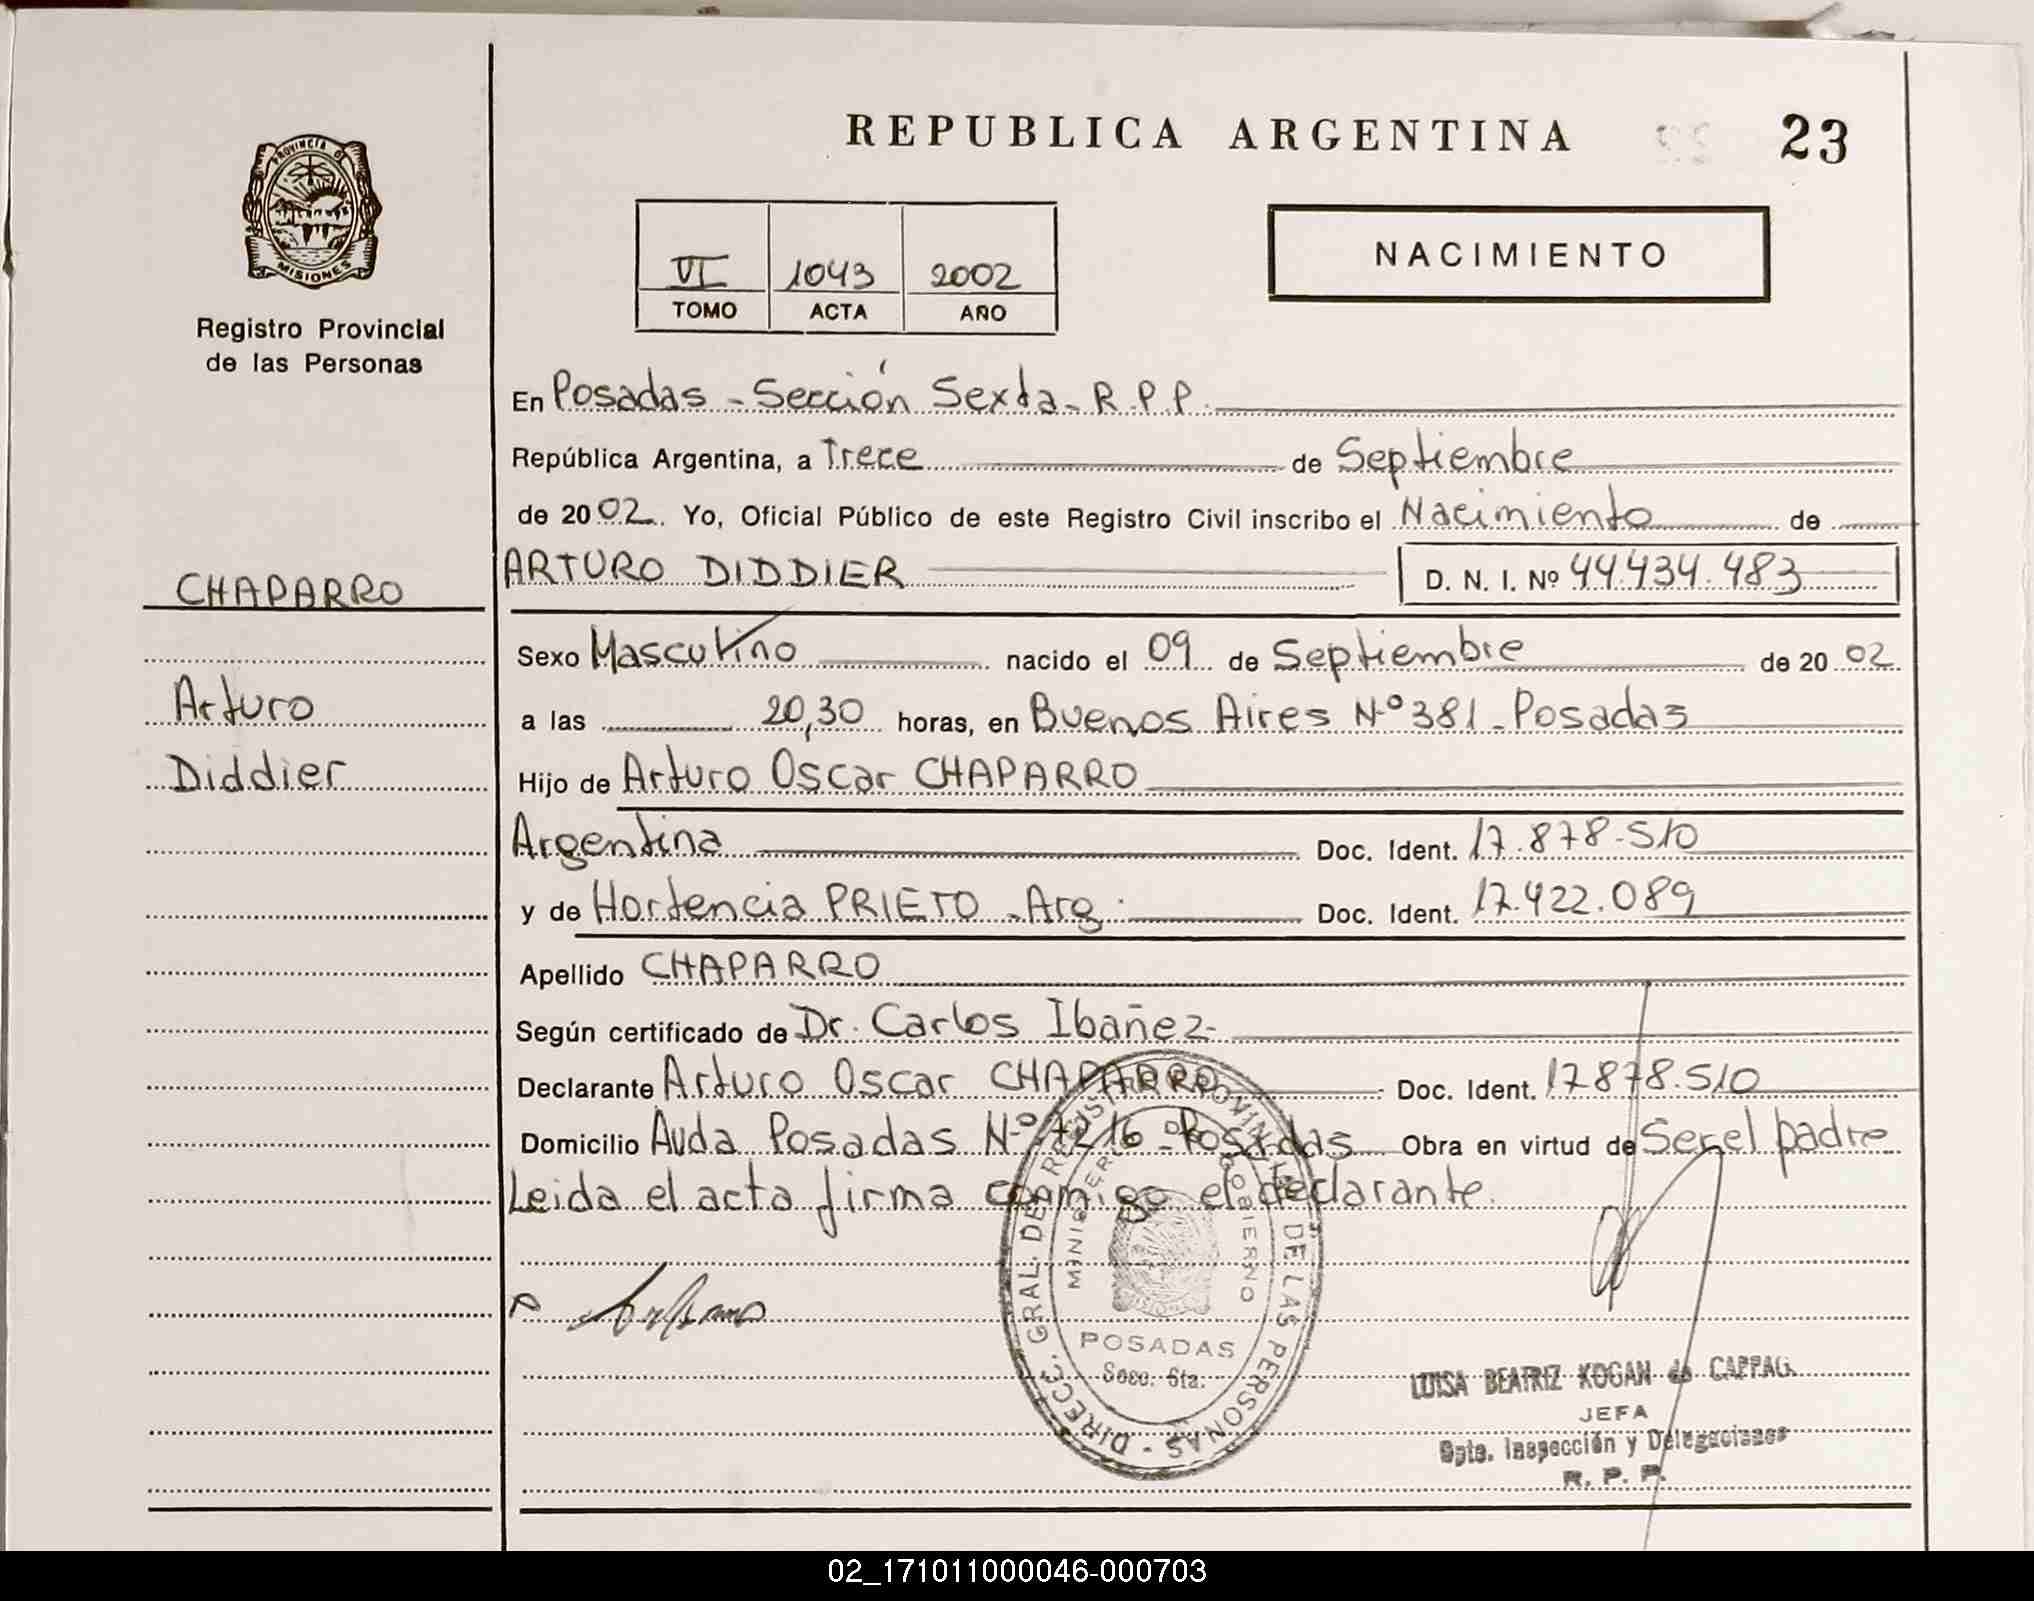 REPUBLICA ARGENTINA 23
PROVINCIA DE
MISIONES
Registro Provincial
de las Personas
VI 1043 2002
TOMO ACTA AÑO
NACIMIENTO
En Posadas - Sección Sexta - R.P.P.
República Argentina, a Trece de Septiembre
de 2002. Yo, Oficial Público de este Registro Civil inscribo el Nacimiento de
CHAPARRO
ARTURO DIDDIER D. N. I. Nº 44.434.483
Sexo Masculino nacido el 09 de Septiembre de 2002
Arturo
a las 20,30 horas, en Buenos Aires Nº 381 - Posadas
Diddier
Hijo de Arturo Oscar CHAPARRO
Argentina Doc. Ident. 17.878.510
y de Hortencia PRIETO - Arg. Doc. Ident. 17.422.089
Apellido CHAPARRO
Según certificado de Dr. Carlos Ibañez-
Declarante Arturo Oscar CHAPARRO Doc. Ident. 17878.510
Domicilio Avda Posadas Nº - Posadas Obra en virtud de Ser el padre
Leida el acta firma conmigo el declarante.
DIRECC. GRAL. DEL REGISTRO PROVINCIAL DE LAS PERSONAS
MINISTERIO DE GOBIERNO
POSADAS
Secc. 6ta.
LUISA BEATRIZ KOGAN de
JEFA
Dpto. Inspección y Delegaciones
R. P. P.
02_171011000046-000703